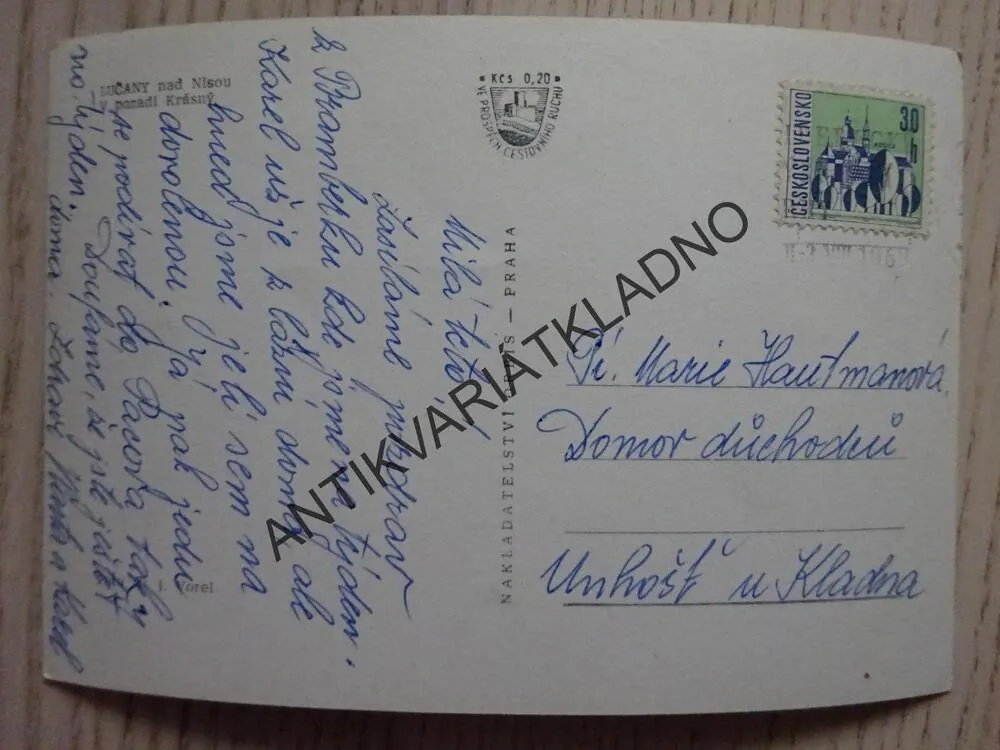 LUČANY nad Nisou
V pozadí Krásný
Kčs 0,20
VE PROSPĚCH CESTOVNÍHO RUCHU
ČESKOSLOVENSKO
30
h
KOŠICE
NAKLADATELSTVÍ ORBIS — PRAHA
ANTIKVARIÁTKLADNO
Milá teto!
Zasíláme pozdrav
z Bramberku kde jsme na týden.
Karel už je z lázní doma ale
hned jsme jeli sem na
dovolenou. Já pak jedu
se podívat do Pacova taky
na týden. Doufáme, že jste ještě
doma. Zdraví a Karel
Pí. Marie Hautmanová
Domov důchodců
Unhošť u Kladna